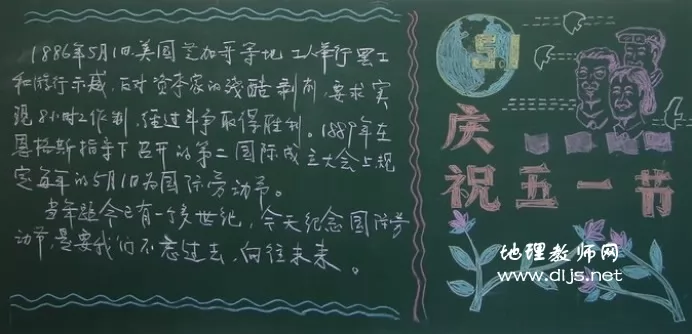 1886年5月1日,美国芝加哥等地工人举行罢工
和游行示威,反对资本家的残酷剥削,要求实
现8小时工作制,经过斗争取得胜利。1889年在
恩格斯指导下召开的第二国际成立大会上规
定每年的5月1日为国际劳动节。
当年距今已有一个多世纪,今天纪念国际劳
动节,是要我们不忘过去,向往未来。
5.1
庆
祝五一节
地理教师网
www.dljs.net